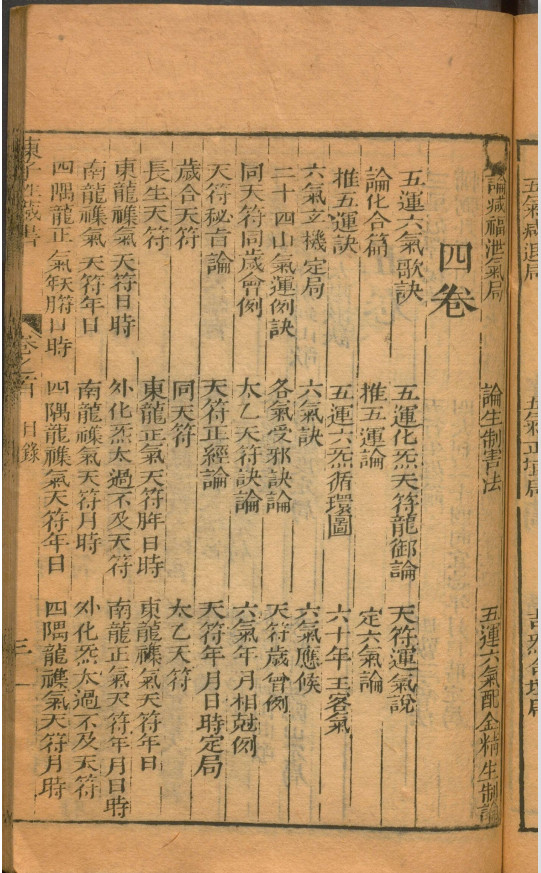 論減福泄氣局　論生制害法　五運六氣配金精生制論
四卷
五運六氣歌訣　五運化炁天符龍御論　天符運氣說
論化合篇　推五運論　定六氣論
推五運訣　五運六炁循環圖　六十年王客氣
六氣立機定局　六氣訣　六氣應候
二十四山氣運例訣　各氣受邪訣論　天符歲會例
同天符同歲會例　太乙天符訣論　六氣年月相尅例
天符秘旨論　天符正經論　天符年月日時定局
歲合天符　同天符　太乙天符
長生天符　東龍正氣天符年日時　東龍襍氣天符年日
東龍襍氣天符日時　外化炁太過不及天符　南龍正氣天符年月日時
南龍襍氣天符年日　南龍襍氣天符月時　外化炁太過不及天符
四隅龍正氣天符年月日時　四隅龍襍氣天符年日　四隅龍襍氣天符月時
藏書　卷之首　目錄　三